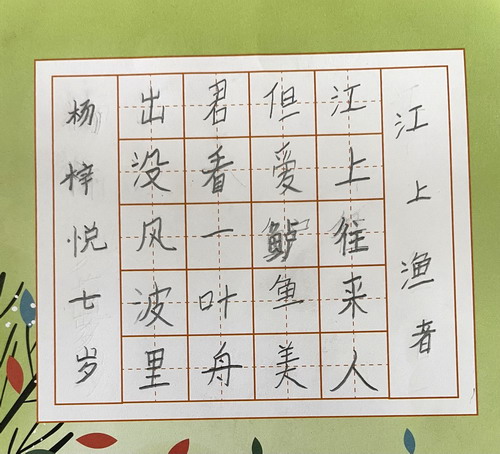 江上渔者
江上往来人
但爱鲈鱼美
君看一叶舟
出没风波里
杨梓悦七岁